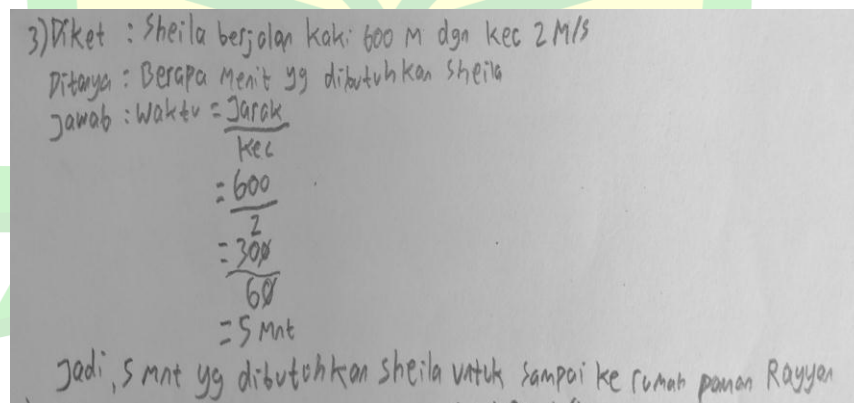 3) Diket : Sheila berjalan kaki 600 M dgn kec 2 M/s
Ditanya : Berapa Menit yg dibutuhkan Sheila
Jawab : Waktu = Jarak
Kec
= 600
2
= 300
60
= 5 Mnt
Jadi, 5 mnt yg dibutuhkan sheila untuk sampai ke rumah paman Rayyan